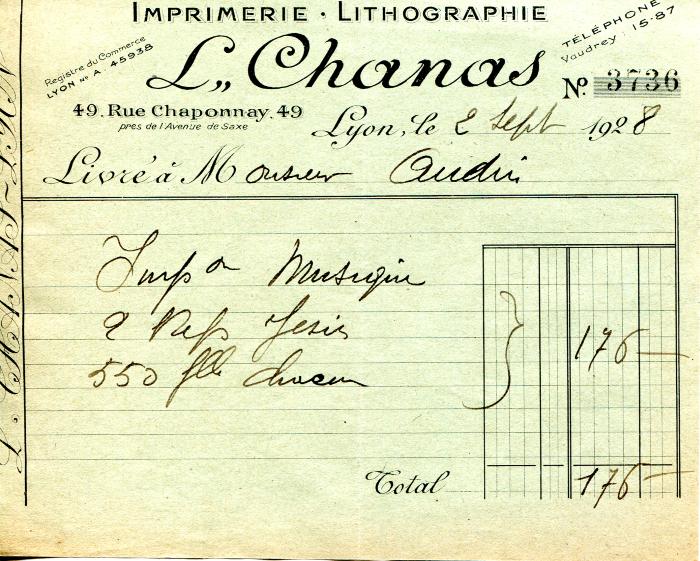 IMPRIMERIE · LITHOGRAPHIE
Registre du Commerce
LYON No A. 45938
TÉLÉPHONE
Vaudrey: 15-87
L. Chanas
No. 3736
49. Rue Chaponnay. 49
près de l'Avenue de Saxe
Lyon, le 2 Sept 1928
Livré à Monsieur Audin
L. CHANAS-LYON
Impon Musique
2 Jésus
550 flles chacun
176—
Total 176—